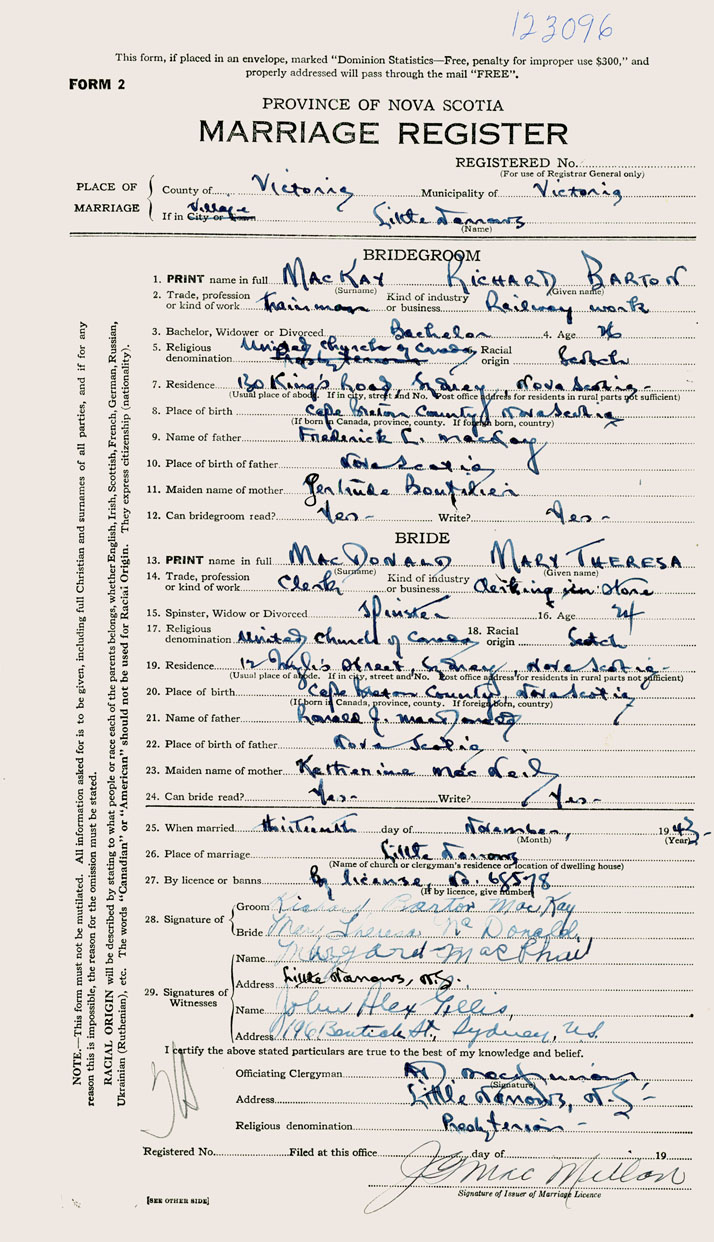 123096
This form, if placed in an envelope, marked "Dominion Statistics—Free, penalty for improper use $300," and
properly addressed will pass through the mail "FREE".
FORM 2
PROVINCE OF NOVA SCOTIA
MARRIAGE REGISTER
REGISTERED No.
(For use of Registrar General only)
PLACE OF MARRIAGE
County of Victoria Municipality of Victoria
Village
If in City or Town Little Narrows
(Name)
BRIDEGROOM
1. PRINT name in full MACKAY RICHARD BARTON
(Surname) (Given name)
2. Trade, profession or kind of work trainman Kind of industry or business Railway work
3. Bachelor, Widower or Divorced Bachelor 4. Age 26
5. Religious denomination United Church of Canada Presbyterian Racial origin Scotch
7. Residence 130 King's Road, Sydney, Nova Scotia -
(Usual place of abode. If in city, street and No. Post office address for residents in rural parts not sufficient)
8. Place of birth Cape Breton County, Nova Scotia
(If born in Canada, province, county. If foreign born, country)
9. Name of father Frederick C. MacKay
10. Place of birth of father Nova Scotia
11. Maiden name of mother Gertrude Boutilier
12. Can bridegroom read? Yes - Write? Yes -
BRIDE
13. PRINT name in full MACDONALD MARY THERESA
(Surname) (Given name)
14. Trade, profession or kind of work Clerk Kind of industry or business Clerking in Store
15. Spinster, Widow or Divorced Spinster 16. Age 24
17. Religious denomination United Church of Canada 18. Racial origin Scotch
19. Residence 12 Street, Sydney, Nova Scotia -
(Usual place of abode. If in city, street and No. Post office address for residents in rural parts not sufficient)
20. Place of birth Cape Breton County, Nova Scotia
(If born in Canada, province, county. If foreign born, country)
21. Name of father Ronald J. MacDonald
22. Place of birth of father Nova Scotia
23. Maiden name of mother Katherine MacNeil
24. Can bride read? Yes - Write? Yes -
25. When married thirteenth day of November, 1943 -
(Month) (Year)
26. Place of marriage Little Narrows
(Name of church or clergyman's residence or location of dwelling house)
27. By licence or banns By license, No. 68578
(If by licence, give number)
28. Signature of
Groom Richard Barton MacKay
Bride Mary Theresa McDonald
29. Signatures of Witnesses
Name Margaret MacPhail
Address Little Narrows, N.S.
Name John Alex Gillis,
Address 196 Bentick St, Sydney, N.S.
I certify the above stated particulars are true to the best of my knowledge and belief.
Officiating Clergyman
(Signature)
Address Little Narrows, N.S. -
Religious denomination Presbyterian -
Registered No. Filed at this office day of 19
J G MacMillan
Signature of Issuer of Marriage Licence
[SEE OTHER SIDE]
NOTE.—This form must not be mutilated. All information asked for is to be given, including full Christian and surnames of all parties, and if for any
reason this is impossible, the reason for the omission must be stated.
RACIAL ORIGIN will be described by stating to what people or race each of the parents belongs, whether English, Irish, Scottish, French, German, Russian,
Ukrainian (Ruthenian), etc. The words "Canadian" or "American" should not be used for Racial Origin. They express citizenship (nationality).